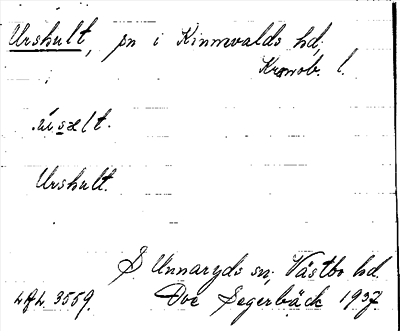 Urshult, sn i Kinnevalds hd,
Kronob. l.
ú̄sǝlt.
Urshult.
S. Unnaryds sn, Västbo hd
LAL 3559. Ove Segerbäck 1937